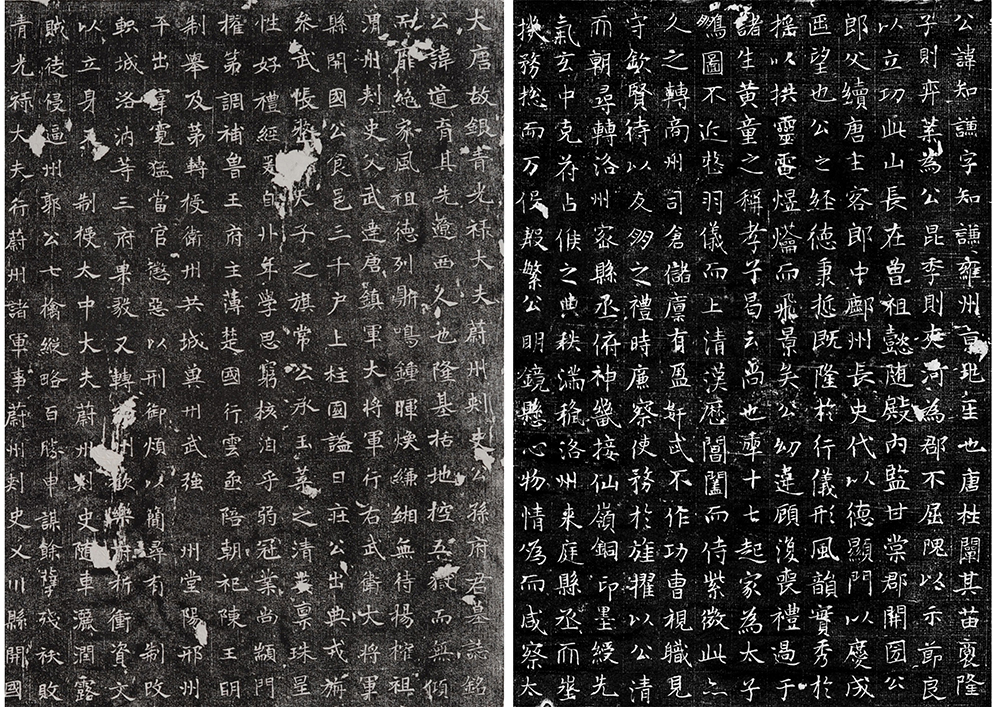 大唐故銀青光祿大夫蔚州刺史公孫府君墓誌銘
公諱道育其先遼西人也隆基拓地控五嶽而無傾
絕家風祖德列鼎鳴鍾暉煥縑緗無待揚榷祖
渭州刺史父武達唐鎮軍大將軍行右武衛大將軍
縣開國公食邑三千戶上柱國謚曰莊公出典戎旃
參武帳發天子之旗常公承玉葉之清業禀珠星
性好禮經爰自丱年學思窮核洎乎弱冠業尚顓門
權苐調補魯王府主薄楚國行雲丞陪朝祀陳王明
制舉及第轉授衛州共城兾州武強 州堂陽邢州
平出宰寬猛當官懲惡以刑御煩以簡尋有 制改
軹城洛汭等三府果毅又轉 州歡樂府折衝資文
以立身 制授太中大夫蔚州刺史隨車灑潤露
賊徒侵逼州郭公七擒縱略百勝申謀餘孽殘祅敗
青光祿大夫行蔚州諸軍事蔚州刺史乂川縣開國
公諱知謙字知謙雍州京兆 也唐杜闡其苗裔隆
子則弈葉為公昆季則夾河為郡不屈隗以示節良
以立功此山長在曾祖懿隨殿內監甘棠郡開国公
郎父續唐主客郎中鄜州長史代以德顯門以慶成
匹望也公之經德秉哲既隆於行儀形風韻實秀於
搖以拱靈電煜爚而飛景矣公幼違顧復喪禮過于
諸生黃童之稱孝子曷云尚也年十七起家為太子
鵬圖不近整羽儀而上清漢歷閶闔而侍紫微此亦
久之轉商州司倉儲廩有盈奸忒不作功曹視職見
守欽賢待以友朋之禮時廉察使務於旌擢以公清
而朝尋轉洛州 縣丞俯神畿接仙嶺銅印墨綬先
氣玄中克荷占候之典秩滿 洛州來庭縣丞而
撓務揔而万俟殷繁公明鏡懸心物情為而咸察太